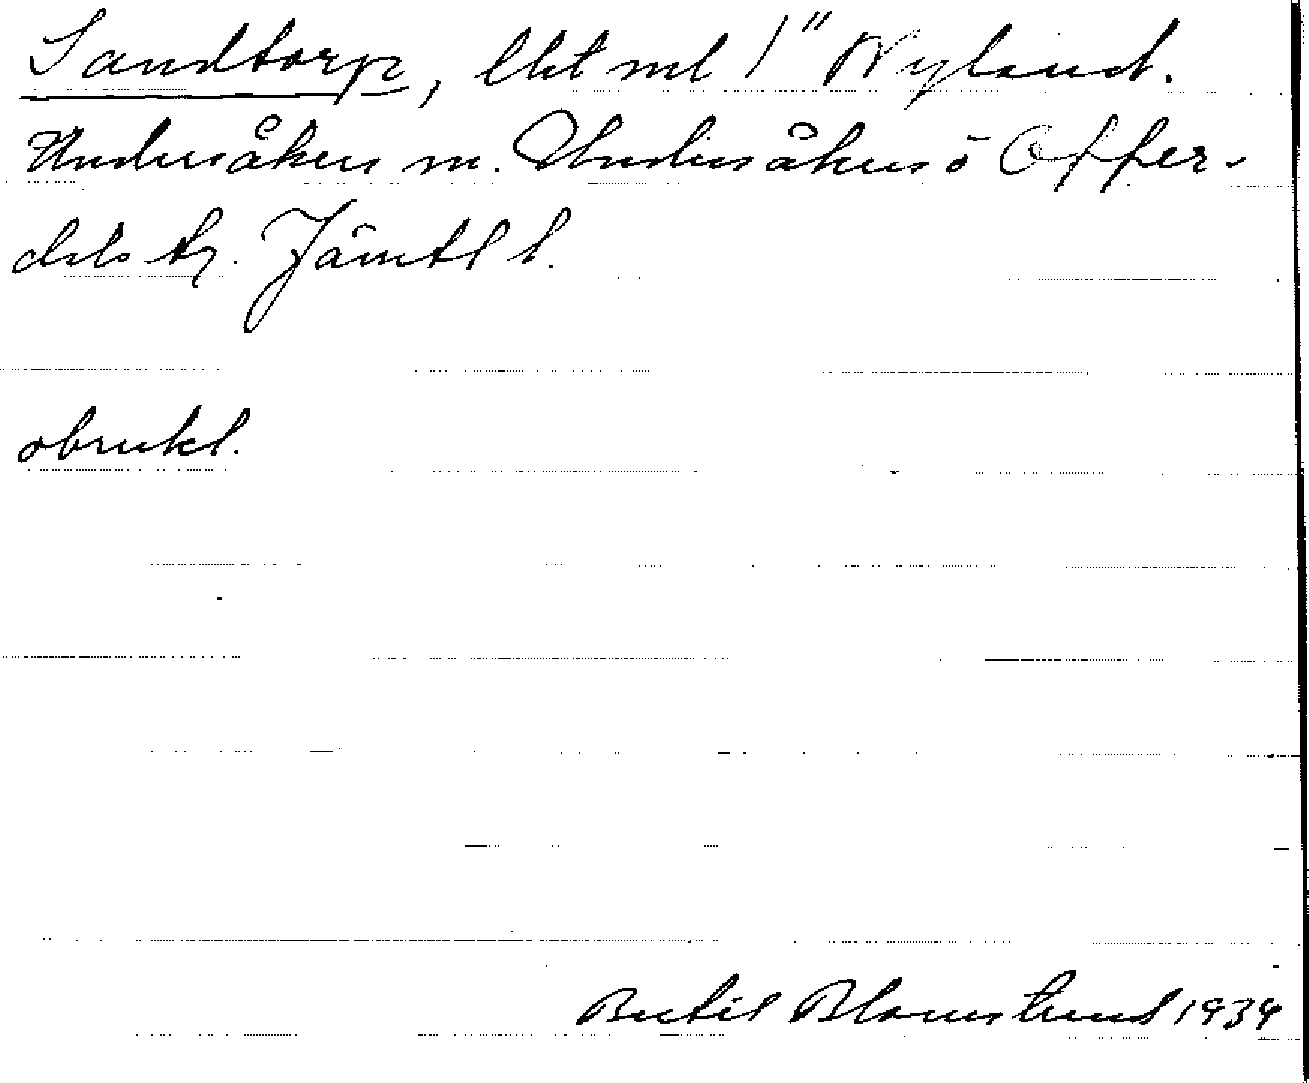 Sandtorp, lht nl 1" Nyland.
Undersåkers sn. Undersåkers o Offer-
dals tg. Jämtl l.
obrukl.
Bertil Blomstrand 1934